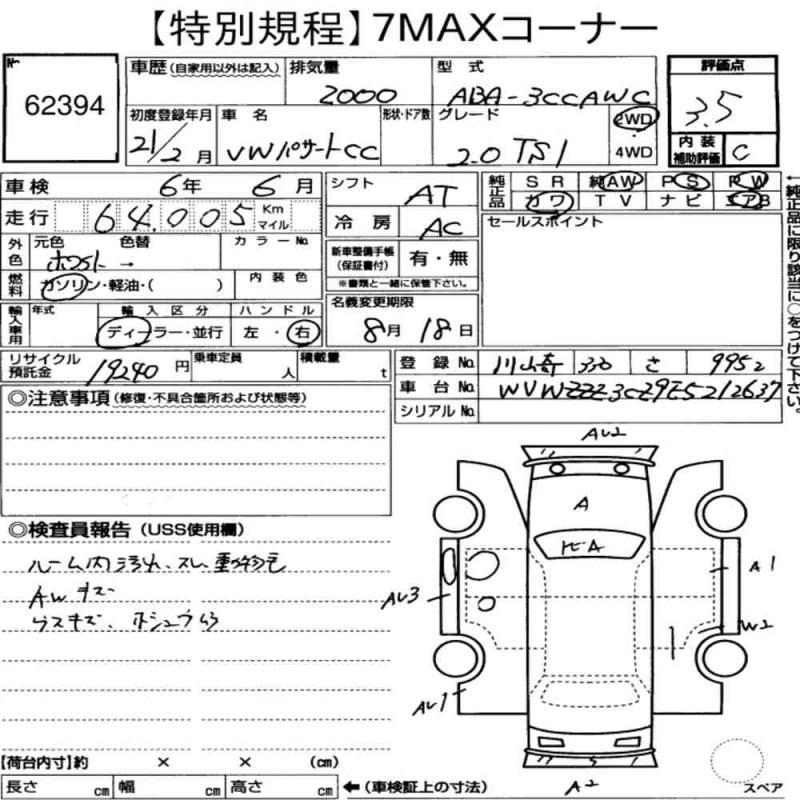 【特別規程】7MAXコーナー
№ 62394
車歴 (自家用以外は記入) 排気量 2000 型式 ABA-3CCAWC
評価点 3.5
初度登録年月 21/2月 車名 VWパサートCC 形状・ドア数 グレード 2.0 TSI 2WD 4WD
内装補助評価 C
車検 6年 6月
走行 64,005 Km マイル
外色 元色 ホワイト 色替 → カラーNo.
燃料 ガソリン・軽油・( ) 内装色
輸入車用 年式 輸入区分 ディーラー・並行 ハンドル 左・右
シフト AT
冷房 AC
新車整備手帳(保証書付) 有・無
※書類と一緒に保管下さい。
名義変更期限 8月18日
純正品 SR 純AW PS RW
カワ TV ナビ エアB
セールスポイント
←純正品に限り該当に○をつけて下さい。
リサイクル預託金 19240円 乗車定員 人 積載量 t
登録No. 川崎 330 さ 9952
車台No. WVWZZZ3CZ9E5212637
シリアルNo.
◎注意事項 (修復・不具合箇所および状態等)
◎検査員報告 (USS使用欄)
ルーム内汚れ、スレ 動物毛
AWキズ
ウスキズ、ホシュウ
AU2
A
A
AU3
A1
W2
AU1
A2
スペア
【荷台内寸】約 × × (cm)
長さ cm 幅 cm 高さ cm ←(車検証上の寸法)